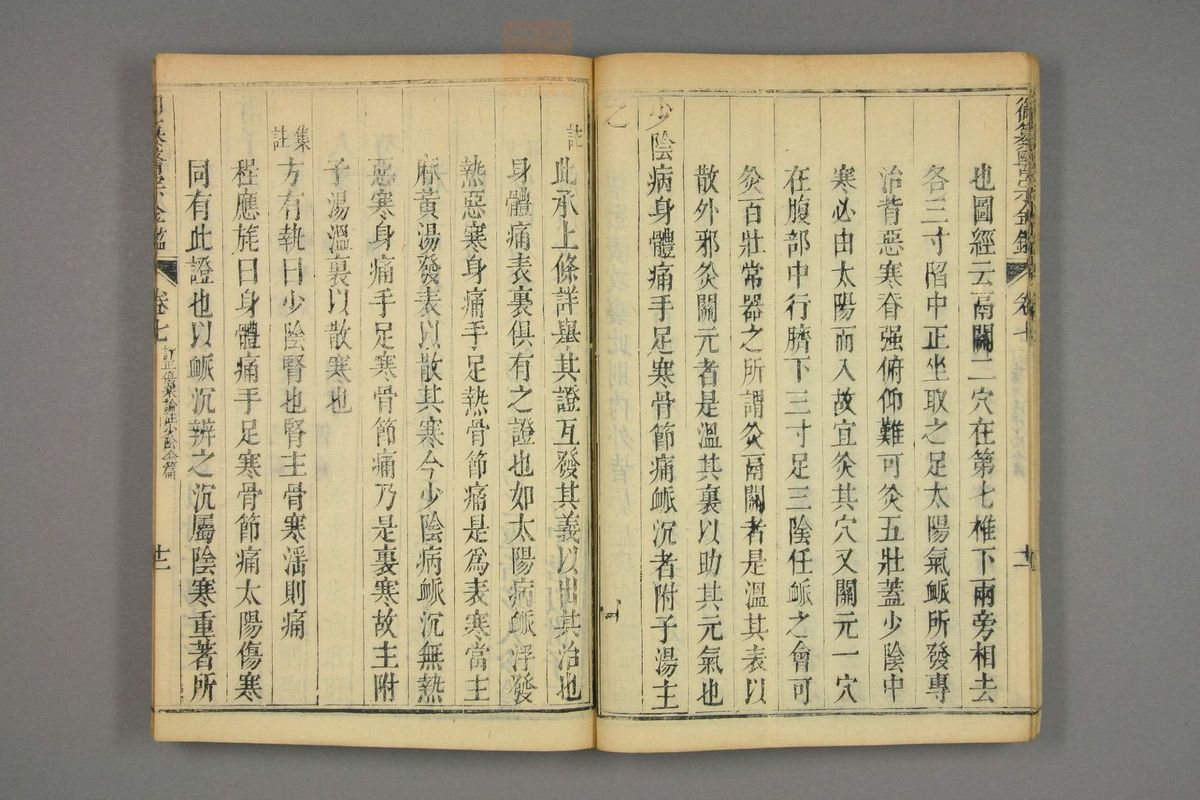 御纂醫宗金鑑 卷七
也圖經云膈關二穴在第七椎下兩旁相去
各三寸陷中正坐取之足太陽氣脈所發專
治背惡寒脊强俯仰難可灸五壯蓋少陰中
寒必由太陽而入故宜灸其穴又關元一穴
在腹部中行臍下三寸足三陰任脈之會可
灸百壯常器之所謂灸膈關者是溫其表以
散外邪灸關元者是溫其裏以助其元氣也
少陰病身體痛手足寒骨節痛脈沉者附子湯主
之
註 此承上條詳舉其證互發其義以出其治也
身體痛表裏俱有之證也如太陽病脈浮發
熱惡寒身痛手足熱骨節痛是爲表寒當主
麻黃湯發表以散其寒今少陰病脈沉無熱
惡寒身痛手足寒骨節痛乃是裏寒故主附
子湯溫裏以散寒也
集註 方有執曰少陰腎也腎主骨寒淫則痛
程應旄曰身體痛手足寒骨節痛太陽傷寒
同有此證也以脈沉辨之沉屬陰寒重著所
醫宗金鑑 卷七 訂正傷寒論註少陰全篇 十二